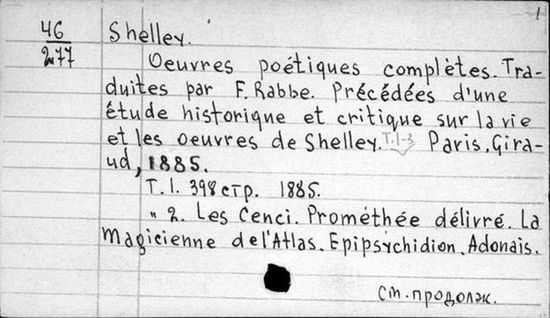 1
46
277
Shelley.
Oeuvres poétiques complètes. Tra-
duites par F. Rabbe. Précédées d'une
étude historique et critique sur la vie
et les oeuvres de Shelley. T.1-3 Paris, Gira-
ud, 1885.
T. 1. 398 стр. 1885.
" 2. Les Cenci. Prométhée délivré. La
Magicienne de l'Atlas. Epipsychidion. Adonais.
см. продолж.